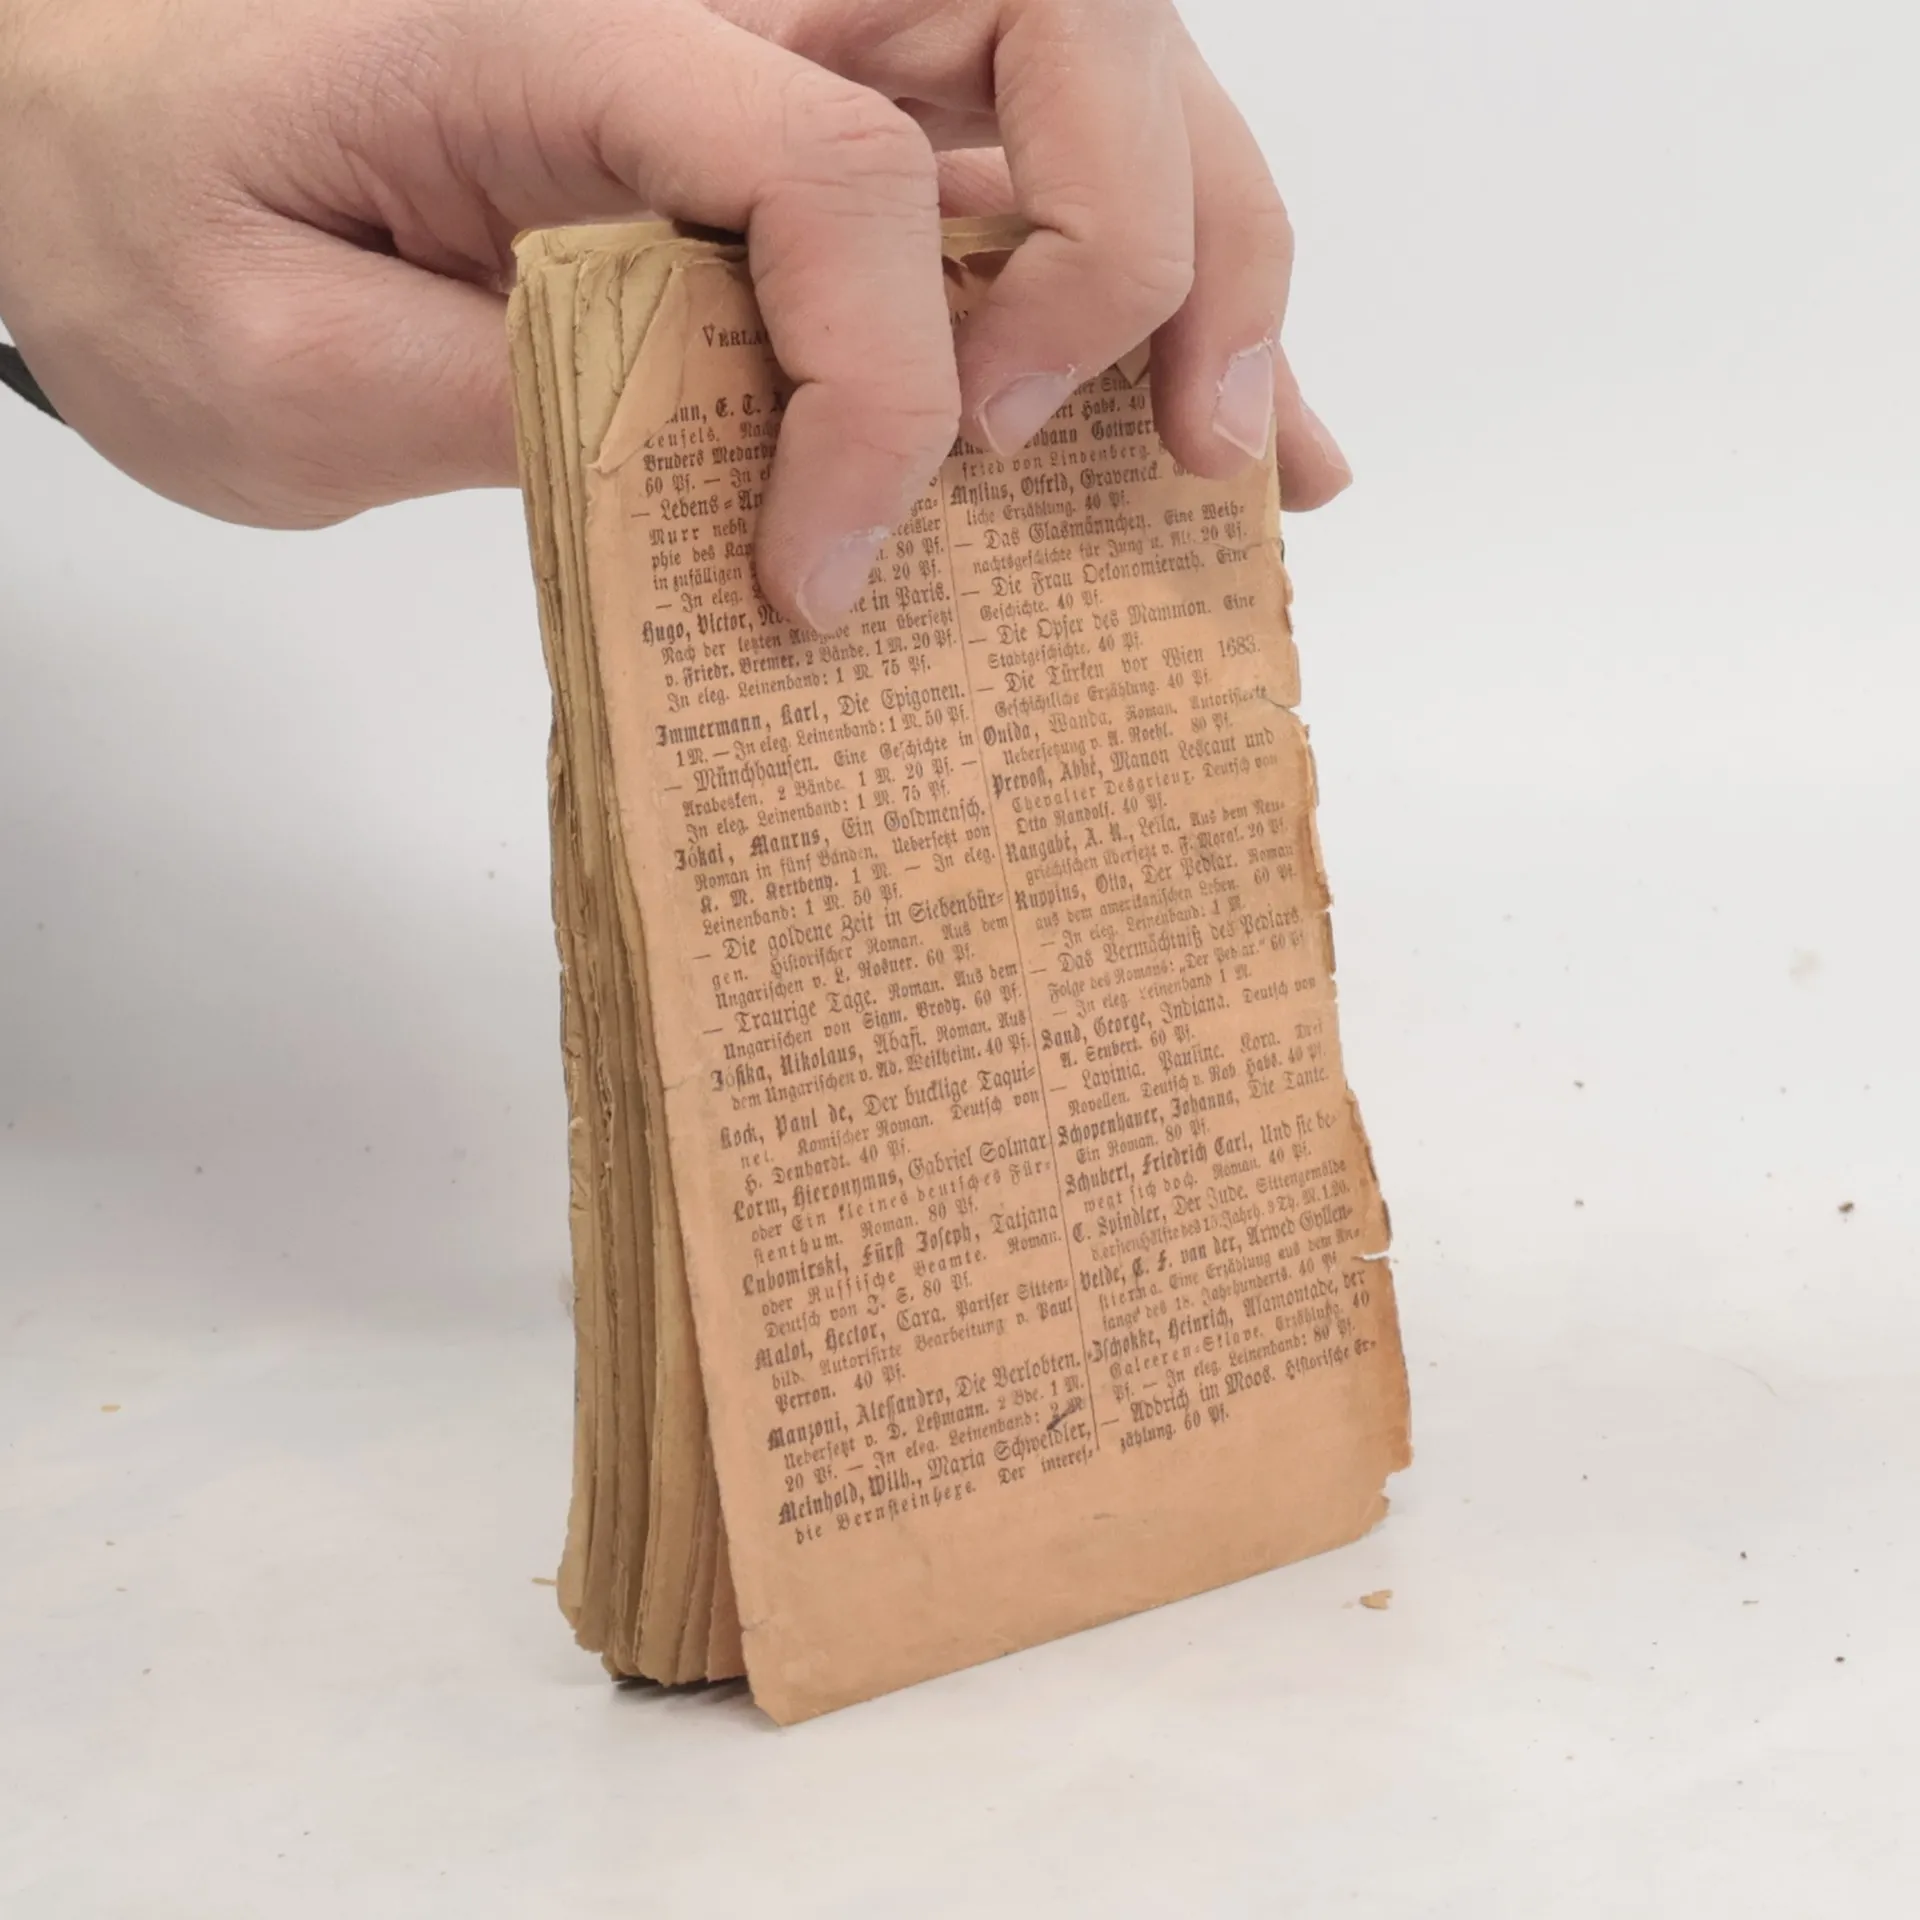 Verla
ann, E. T.
Teufels.
Bruders Medard
60 Pf. — In
— Lebens=An
Murr nebst gra=
phie des Kreisler
in zufälligen 80 Pf.
— In eleg. M. 20 Pf.
Hugo, Victor, in Paris.
Nach der letzten Ausgabe neu übersetzt
v. Friedr. Bremer. 2 Bände. 1 M. 20 Pf.
In eleg. Leinenband: 1 M. 75 Pf.
Immermann, Karl, Die Epigonen.
1 M. — In eleg. Leinenband: 1 M. 50 Pf.
— Münchhausen. Eine Geschichte in
Arabesken. 2 Bände. 1 M. 20 Pf. —
In eleg. Leinenband: 1 M. 75 Pf.
Jókai, Maurus, Ein Goldmensch.
Roman in fünf Bänden. Uebersetzt von
K. M. Kertbeny. 1 M. — In eleg.
Leinenband: 1 M. 50 Pf.
— Die goldene Zeit in Siebenbür=
gen. Historischer Roman. Aus dem
Ungarischen v. L. Rosner. 60 Pf.
— Traurige Tage. Roman. Aus dem
Ungarischen von Sigm. Brody. 60 Pf.
Jósika, Nikolaus, Abafi. Roman. Aus
dem Ungarischen v. Ad. Weilheim. 40 Pf.
Kock, Paul de, Der bucklige Taqui=
nel. Komischer Roman. Deutsch von
H. Denhardt. 40 Pf.
Lorm, Hieronymus, Gabriel Solmar
oder Ein kleines deutsches Für=
stenthum. Roman. 80 Pf.
Lubomirski, Fürst Joseph, Tatjana
oder Russische Beamte. Roman.
Deutsch von J. S. 80 Pf.
Malot, Hector, Cara. Pariser Sitten=
bild. Autorisirte Bearbeitung v. Paul
Perron. 40 Pf.
Manzoni, Alessandro, Die Verlobten.
Uebersetzt v. D. Leßmann. 2 Bde. 1 M.
20 Pf. — In eleg. Leinenband: 2 M
Meinhold, Wilh., Maria Schweidler,
die Bernsteinhexe. Der interes=
Habs. 40
Johann Gottwer
fried von Lindenberg.
Mylius, Otfrid, Graveneck.
liche Erzählung. 40 Pf.
— Das Glasmännchen. Eine Weih=
nachtsgeschichte für Jung u. Alt. 20 Pf.
— Die Frau Oekonomierath. Eine
Geschichte. 40 Pf.
— Die Opfer des Mammon. Eine
Stadtgeschichte. 40 Pf.
— Die Türken vor Wien 1683.
Geschichtliche Erzählung. 40 Pf.
Ouida, Wanda. Roman. Autorisierte
Uebersetzung v. A. Roehl. 80 Pf.
Prevost, Abbé, Manon Lescaut und
Chevalier Desgrieux. Deutsch von
Otto Randolf. 40 Pf.
Rangabé, A. R., Leila. Aus dem Neu=
griechischen übersetzt v. F. Moral. 20 Pf.
Ruppius, Otto, Der Pedlar. Roman
aus dem amerikanischen Leben. 60 Pf.
— In eleg. Leinenband: 1 M.
— Das Vermächtniß des Pedlars.
Folge des Romans: „Der Pedlar." 60 Pf
— In eleg. Leinenband 1 M.
Sand, George, Indiana. Deutsch von
A. Seubert. 60 Pf.
— Lavinia. Pauline. Kora. Drei
Novellen. Deutsch v. Rob. Habs. 40 Pf.
Schopenhauer, Johanna, Die Tante.
Ein Roman. 80 Pf.
Schubert, Friedrich Carl, Und sie be=
wegt sich doch. Roman. 40 Pf.
C. Spindler, Der Jude. Sittengemälde
d. ersten Hälfte des 15. Jahrh. 3 Th. M. 1.20.
Velde, C. F. van der, Arwed Gyllen=
stierna. Eine Erzählung aus dem An=
fange des 18. Jahrhunderts. 40 Pf
Zschokke, Heinrich, Alamontade, der
Galeeren=Sklave. Erzählung. 40
Pf. — In eleg. Leinenband: 80 Pf.
— Addrich im Moos. Historische Er=
zählung. 60 Pf.